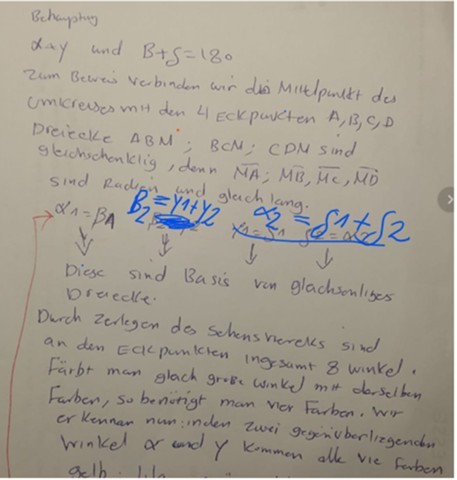 Behauptung
α+y und B+δ=180
Zum Beweis verbinden wir die Mittelpunkt des
Umkreises mit den 4 Eckpunkten A, B, C, D
Dreiecke ABM ; BCM ; CDM sind
gleichschenklig, denn MA ; MB, MC, MD
sind Radien und gleich lang.
α1 = βA B2 = y1+y2 α2 = δ1+δ2
Diese sind Basis von
Dreiecke.
Durch Zerlegen des sind
an den Eckpunkten insgesamt 8 winkel.
Färbt man glach große winkel mit derselben
Farben, so benötigt man vier Farben. wir
erkennen nun: inden zwei gegenüberliegenden
Winkel α und y kommen alle vie Farben
gelb